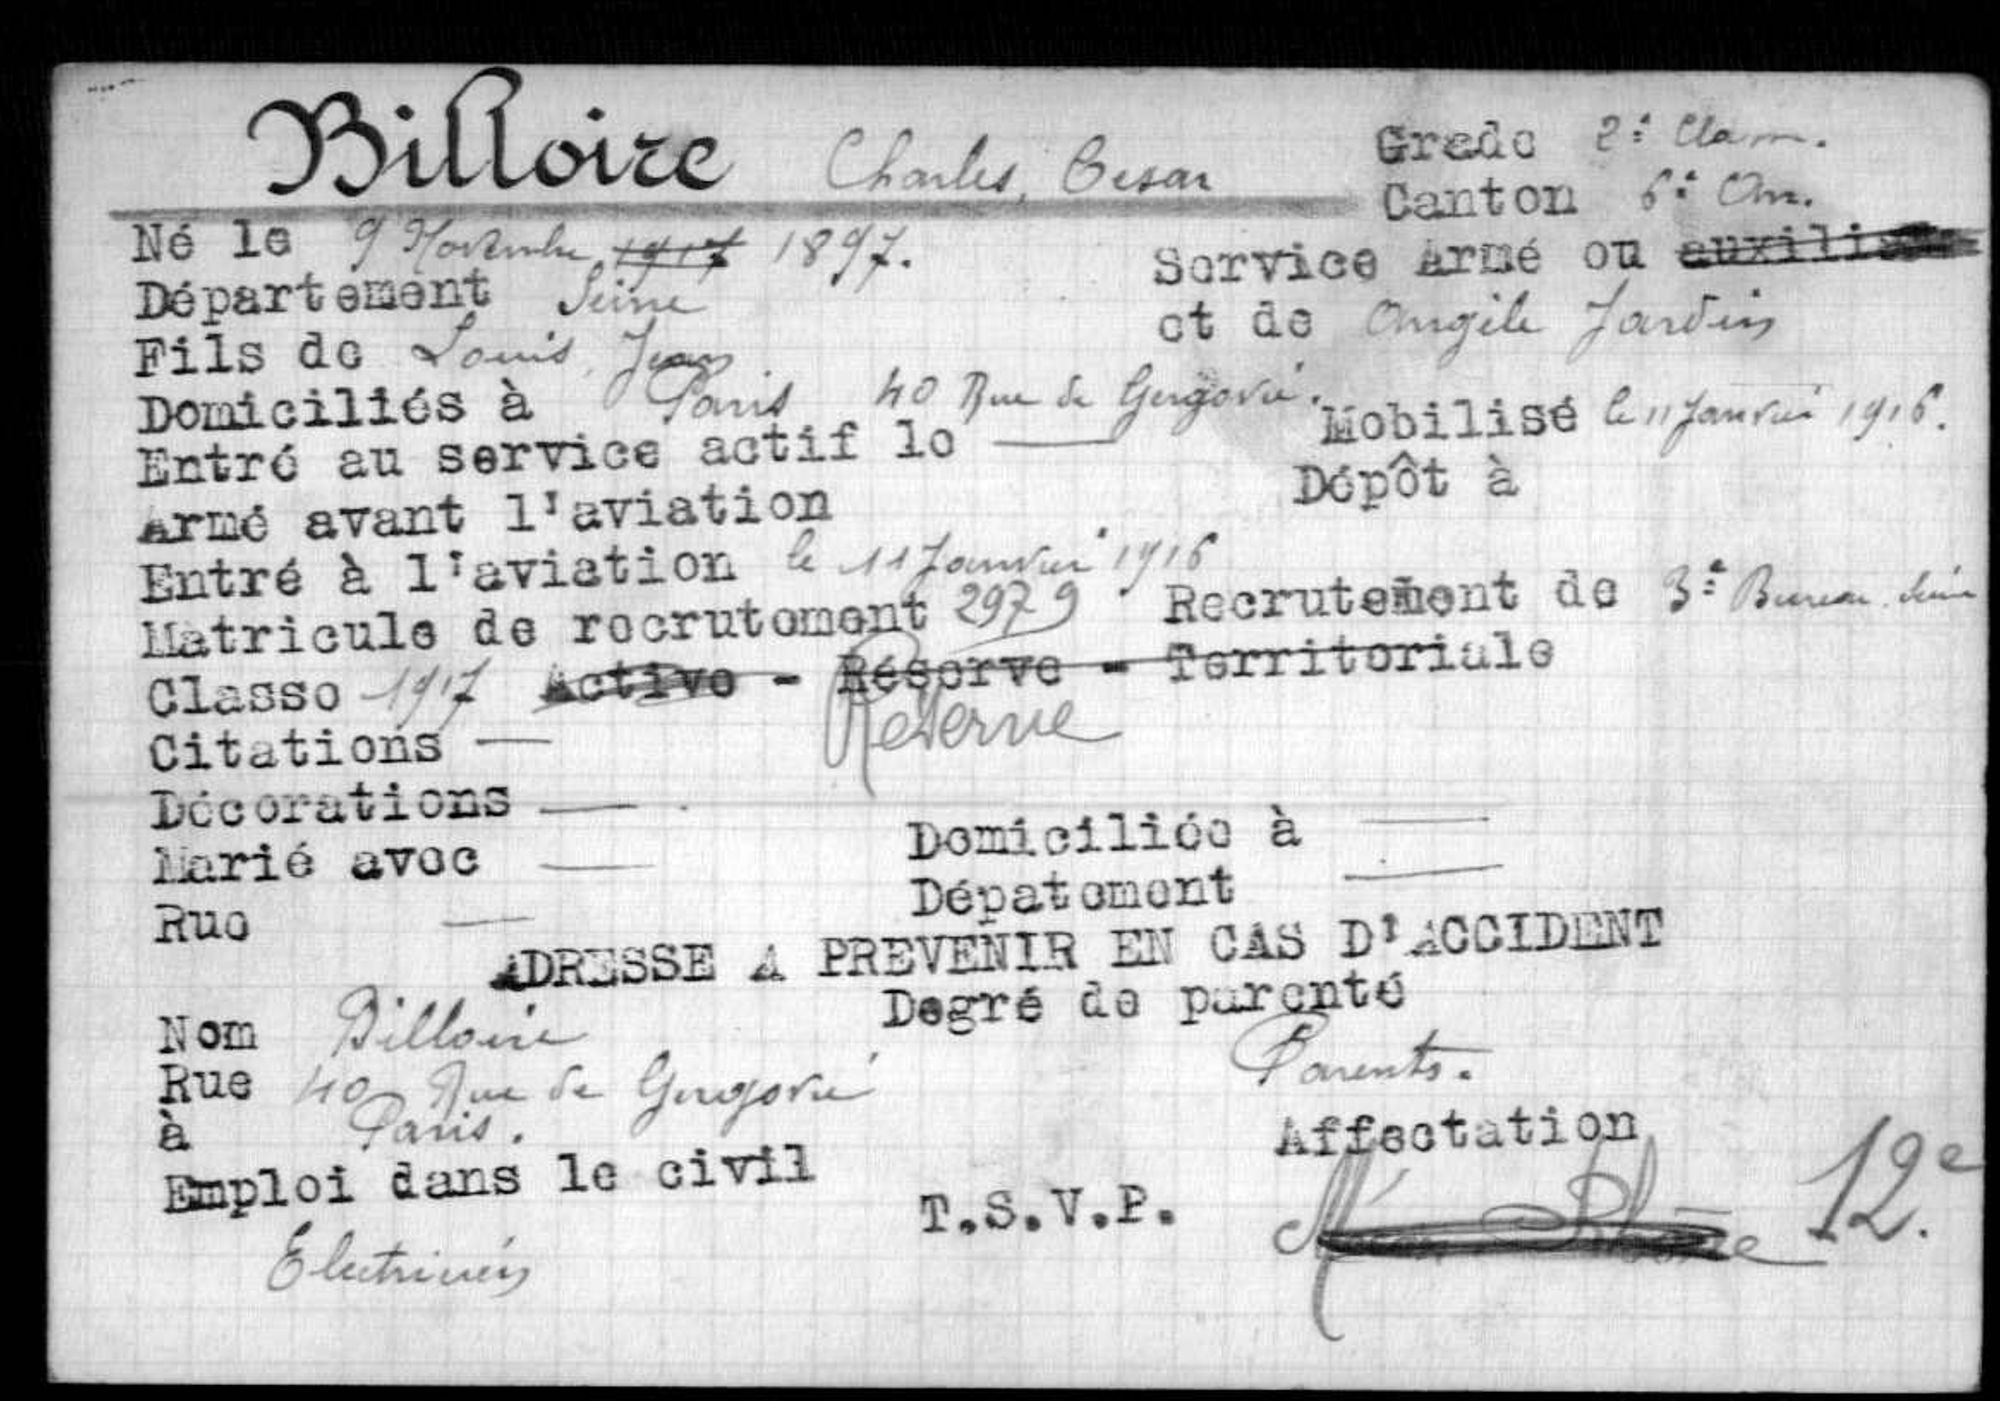 Billoire Charles, Cesar Grade 2e Class.
Canton 6e On.
Né le 9 Novembre 1917 1897. Service Armé ou auxiliaire
Département Seine et de Angèle Jardin
Fils de Louis, Jean
Domiciliés à Paris 40 Rue de Gergovie. Mobilisé le 11 Janvier 1916.
Entré au service actif le — Dépôt à
Armé avant l'aviation
Entré à l'aviation le 11 Janvier 1916
Matricule de recrutement 2979 Recrutement de 3e Bureau Seine
Classe 1917 Active - Réserve - Territoriale
Réserve
Citations —
Décorations —
Marié avec — Domiciliée à —
Rue — Dépatement —
ADRESSE A PREVENIR EN CAS D'ACCIDENT
Nom Billoire Degré de parenté
Rue 40 Rue de Gergovie Parents.
à Paris. Affectation
Emploi dans le civil T.S.V.P. 12e.
Electricien